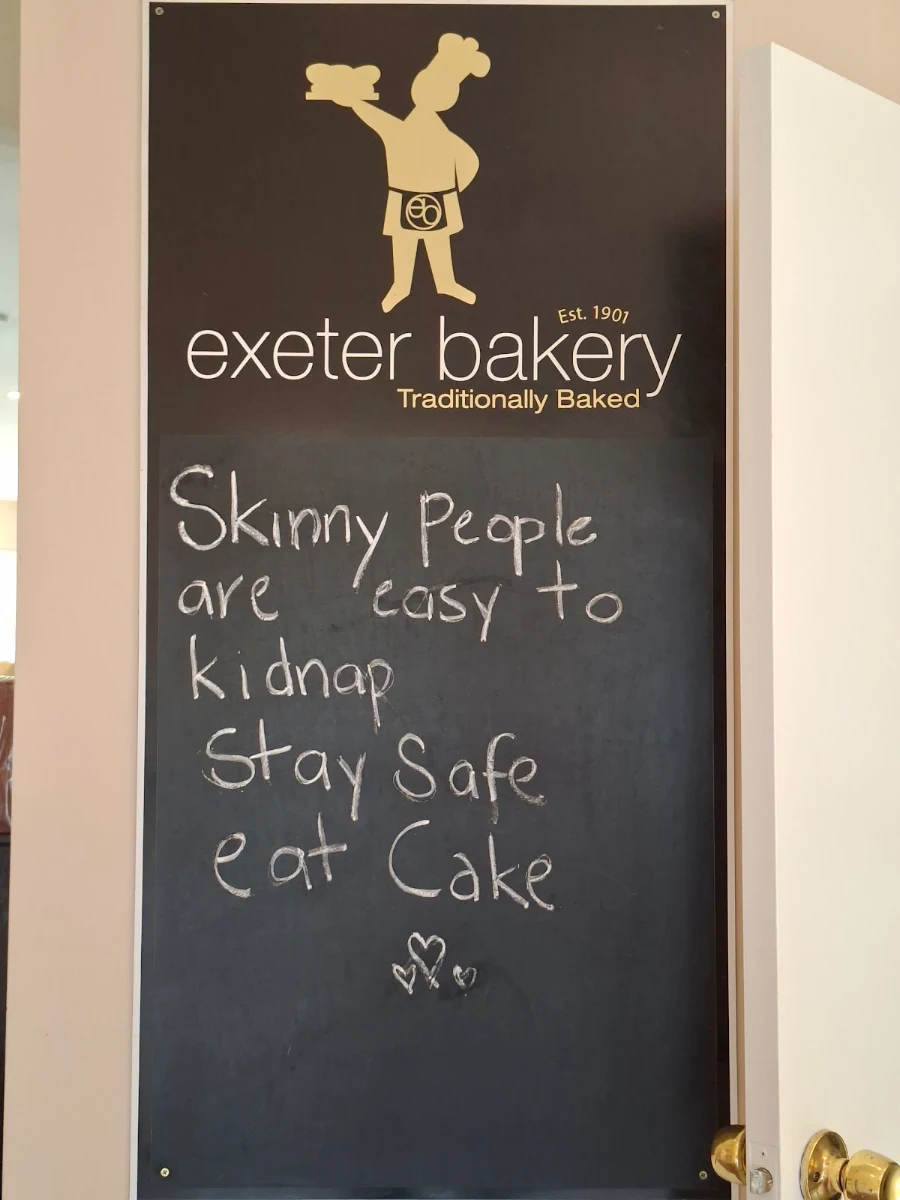 eb
Est. 1901
exeter bakery
Traditionally Baked
Skinny People
are easy to
kidnap
Stay Safe
eat Cake